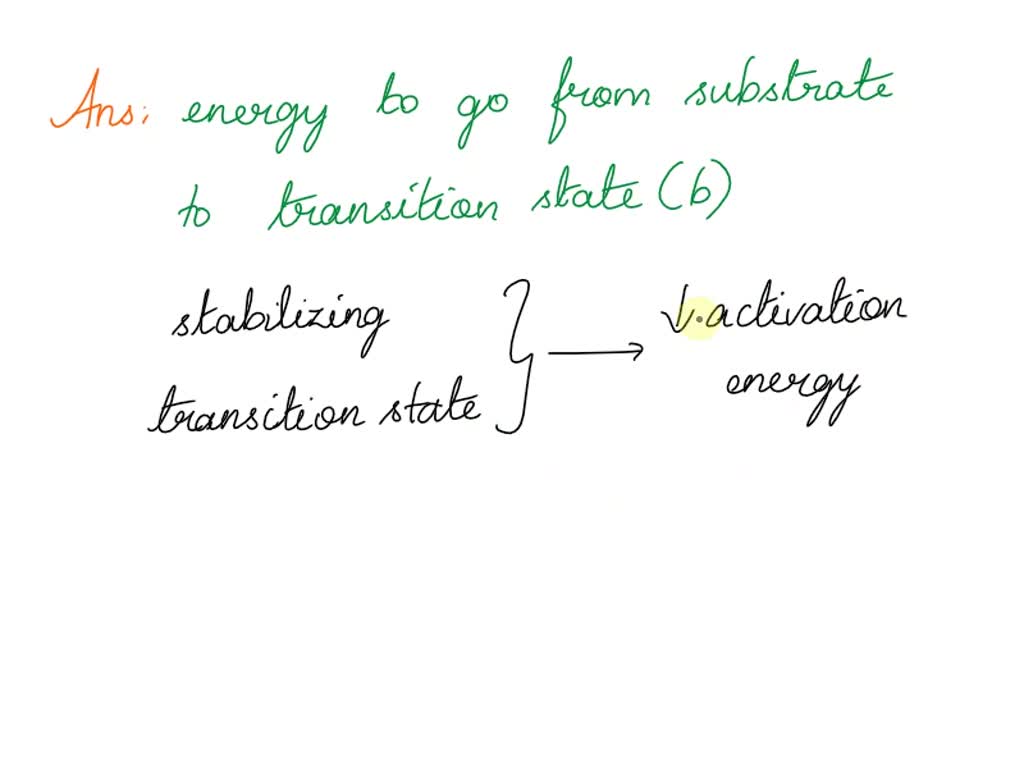 Ans: energy to go from substrate
to transition state (b)
stabilizing
transition state } → ↓.activation
energy